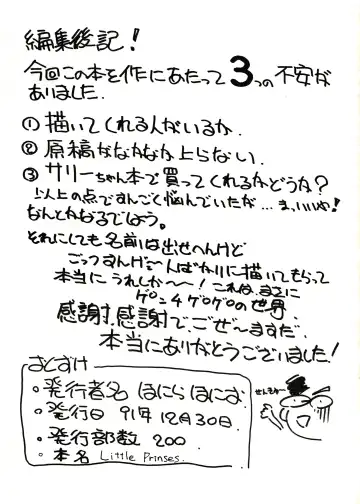 編集後記!
今回この本を作にあたって3つの不安が
ありました.
① 描いてくれる人がいるか.
② 原稿がなかなか上らない.
③ サリーちゃん本で買ってくれるかどうか?
以上の点ですんごと悩んでいたが…ま、いいや!
なんとかなるでしょう。
それにしても名前は出せへんけど
ごっつすんげェ〜んばかりに描いてもらって
本当にうれしか〜〜! これは、まさに
の世界.
感謝.感謝でごぜ〜ますだ.
本当にありがとうございました!
おとずけ
・発行者名 ほにらほにお
・発行日 91年12月30日.
・発行部数 200
・本名 Little Prinses.